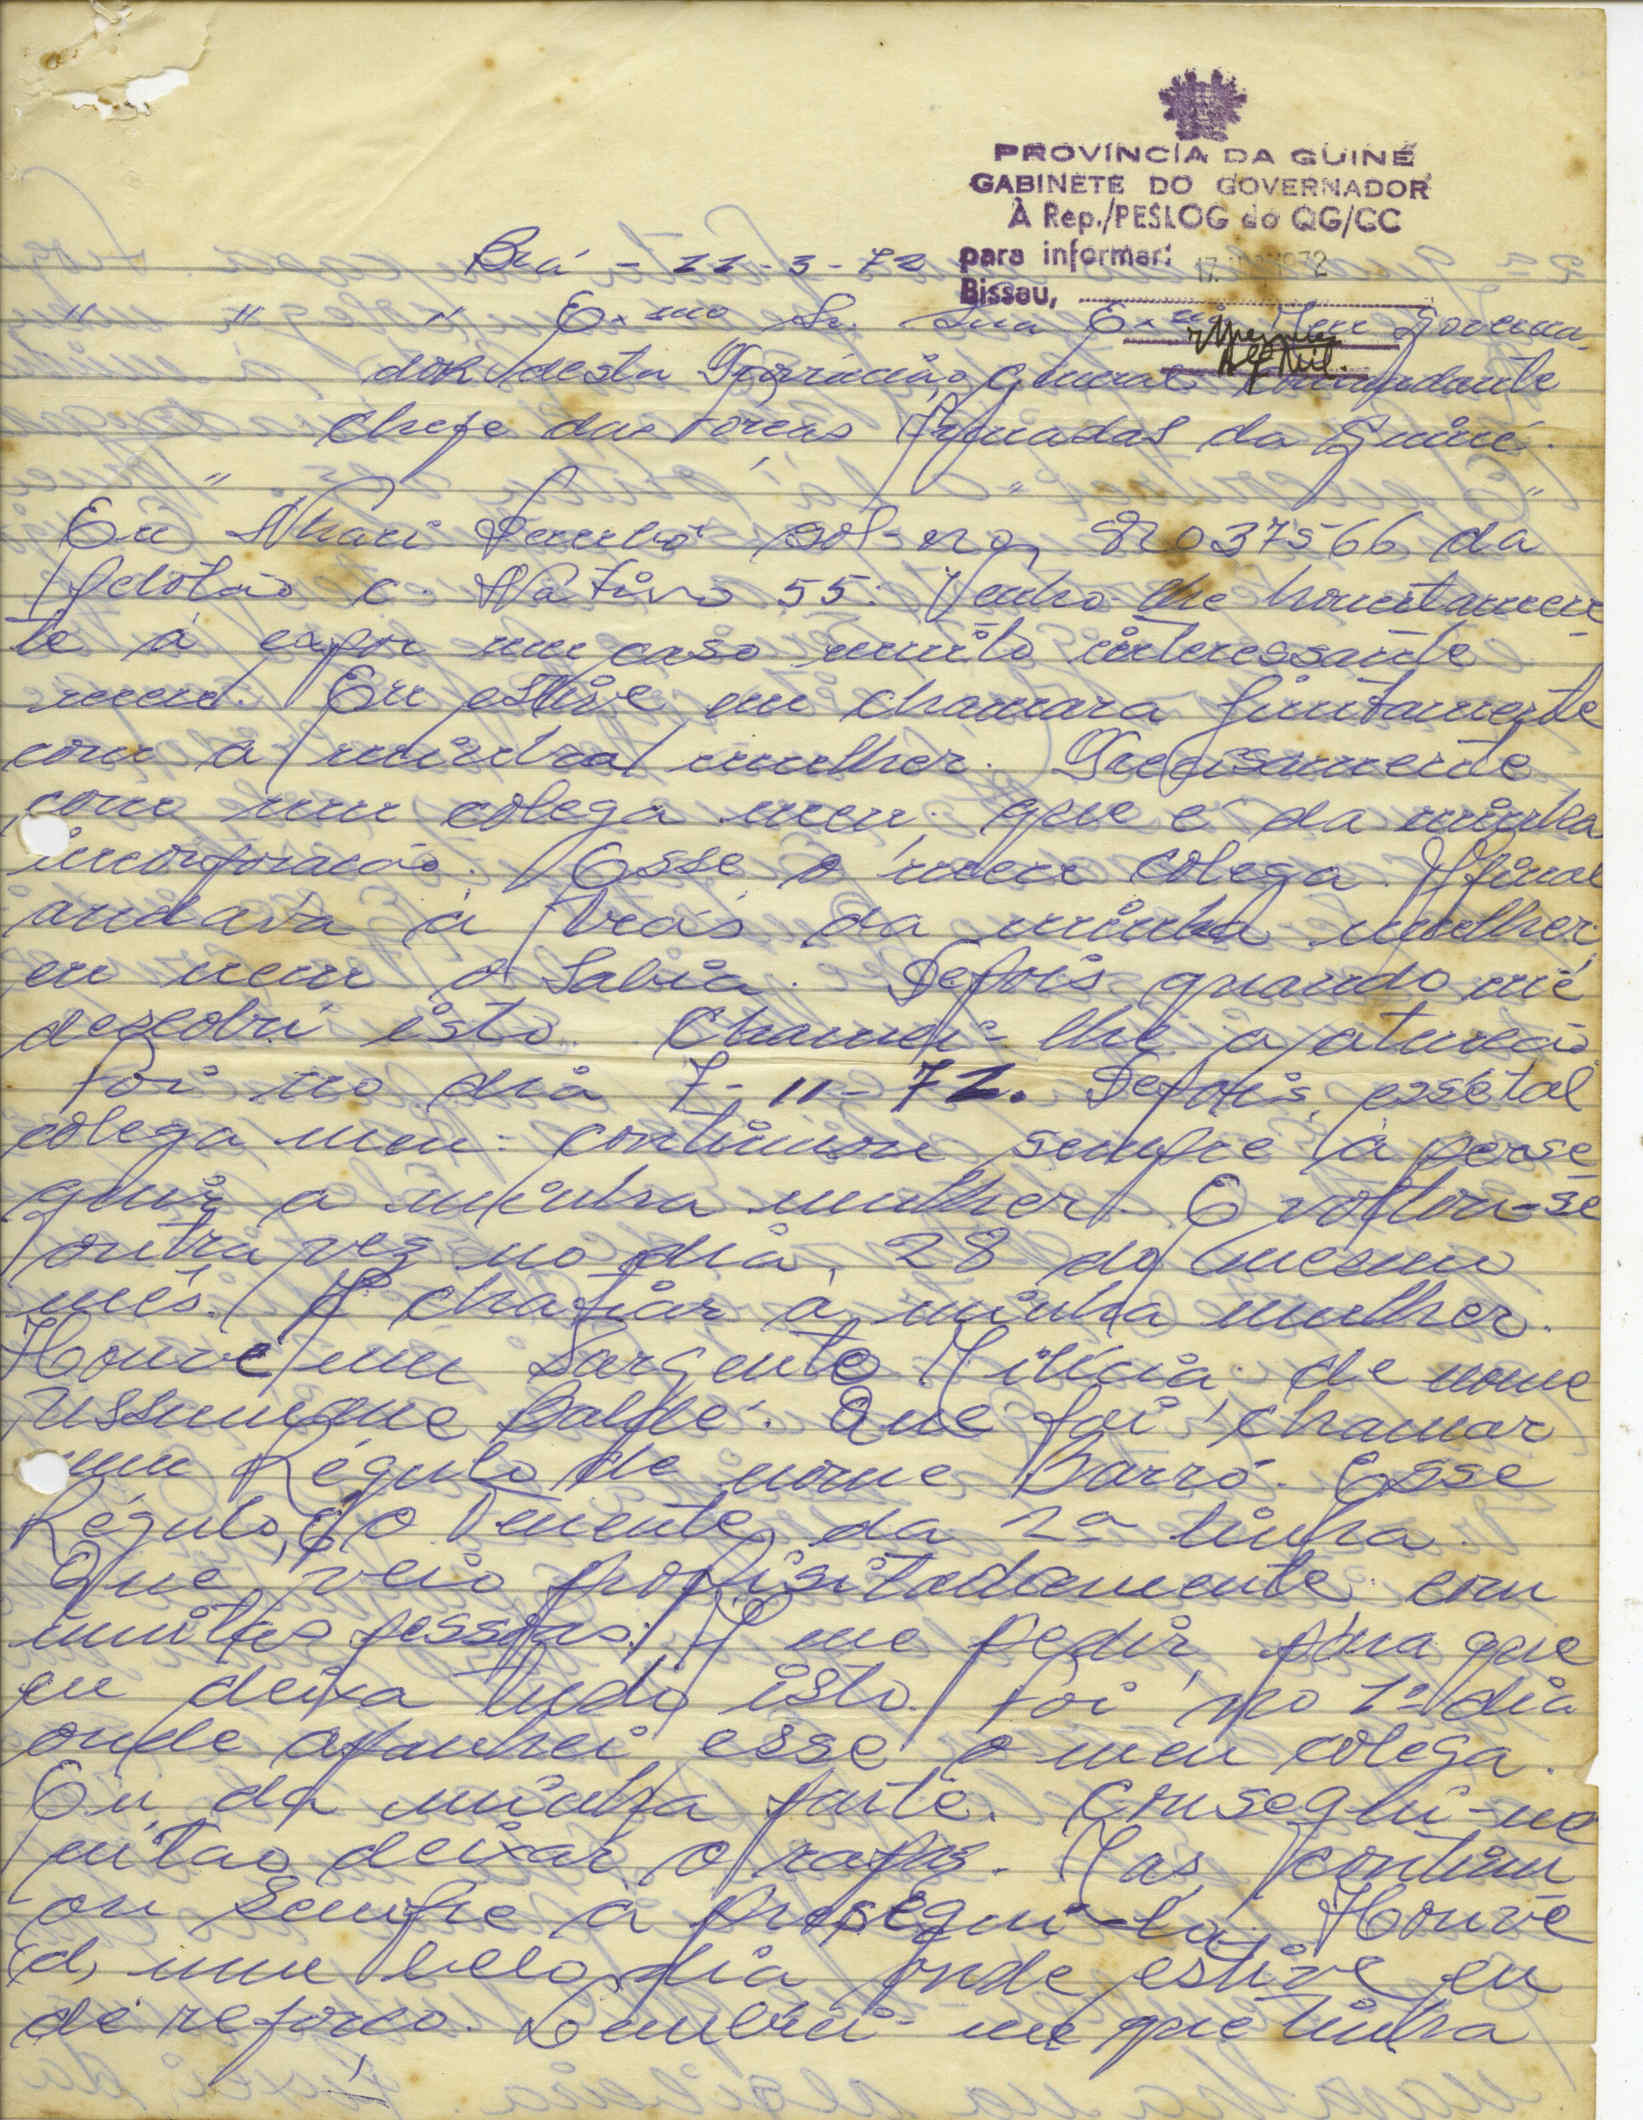 PROVÍNCIA DA GUINÉ
GABINETE DO GOVERNADOR
À Rep./PESLOG do QG/CC
para informar:
17. 1972
Bissau,
Alf Mil.
Brá - 11-3-72
" " " Exmo Sr. Sua Exma Meu Governa
dor desta Província, General Comandante
Chefe das Forças Armadas da Guiné.
" " "
Eu Nhari sol- no, 82037566 da
Pelotão C. Nativo 55: Venho-lhe honestamen
te á expor um caso muito interessante
meu. Eu estive em chamara juntamente
com a minha mulher. Precisamente
com um colega meu; que é da minha
incorporacão. Esse o meu colega. Afinal
andava á trás da minha mulher;
eu nem o Sabia. Depois quando mé
descobri isto. Chamei-lhe a atencão
Foi no dia 7-11-71. Depois, essétal
colega meu: continuou sempre á perse
guir a minha mulher. E voltou-se
outra vez no dia, 28 do mesmo
mês. A chatiar á minha mulher.
Houve um Sargento Milícia de nome
Ussumane Baldé. Que foi chamar
um Régulo de nome Barró. Esse
Régulo, é o Tenente, da 2ª linha.
Que, veio propisitadamente com
muitas pessoas: A me pedir, para que
eu deixa tudo isto. Foi no 1º dia
onde apanhei esse o meu colega.
Eu da minha parte. Consegui-me
então deixar o rapaz. Mas continu
ou Sempre á persegui-la. Houve
d, um belo dia onde estive eu
de reforco. Lembrei-me que tinha